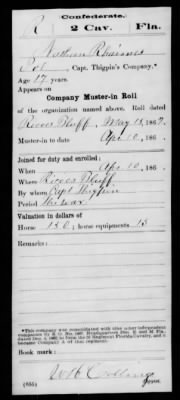 Confederate.
R 2 Cav. Fla.
Nathan
Pvt, Capt. Thigpin's Company.*
Age 17 years.
Appears on
Company Muster-in Roll
of the organization named above. Roll dated
River Bluff, May 18, 186
Muster-in to date Apr 10, 186
Joined for duty and enrolled:
When Apr 10, 186
Where River Bluff
By whom Capt Thigpin
Period the war
Valuation in dollars of
Horse, 150; horse equipments 15
Remarks:
*This company was consolidated with nine other independent
companies by S. O. No. Headquarters Dep. E. and M. Fla.,
dated Dec. 4, 1862, to form the 2d Regiment Florida Cavalry, and it
became Company A of that regiment.
Book mark:
(655)